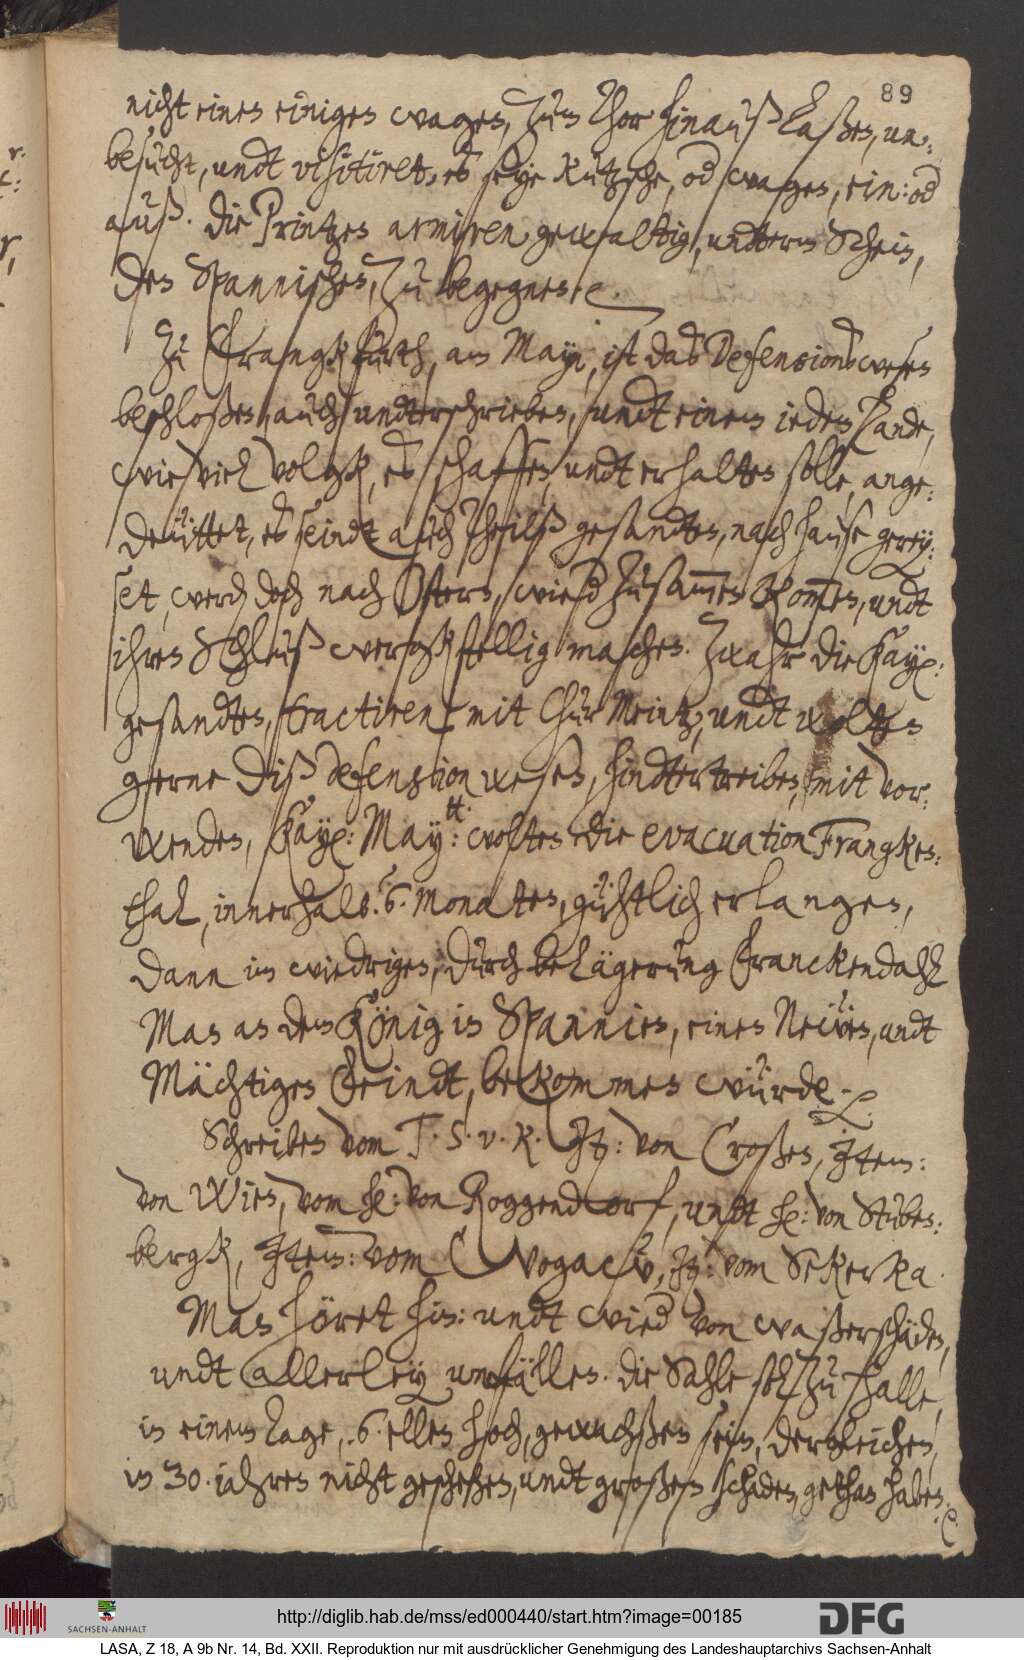 89
nicht einen einigen wagen, zum Thor hinauß laßen, un-
besucht, undt visitiret, es seye kutzsche, od wagen, ein: od
auß. Die Printzen armiren gewaltig, undterm Schein,
den Spannischen, zu begegnen etc.
Zu Frangkfurth, am Mayn, ist das Defensionswesen
beschloßen, auch undterschrieben, undt einem ieden Lande,
wie viel volgk, es schaffen, undt erhalten solle, ange:
deüttet, es seindt auch theilß gesandten, nach hause gerey:
set, werd doch nach Ostern, wied zusammen kommen, undt
ihren Schluß wergkstellig machen. Zwahr die Kay:
gesandten, tractiren mit Chur Meintz, undt wolten
gerne diß defension wesen, hindtertreiben, mit vor:
wenden, Kay: May:tt: wolten die evacuation Frangken:
thal, innerhalb .6. Monaten, gühtlich erlangen,
Dann im wiedrigen, durch belägerung Franckendahl
Man an dem König in Spannien, einen Neüen, undt
Mächtigen Feindt, bekommen würde. etc.
Schreiben vom T. S. v. K. It: von Croßen, Item:
von Wien, vom H: von Roggendorf, undt H: von Stuben:
bergk, Item: vom Wogaciv, It: vom Sekerka.
Man höret hin: undt wied von waßerschäden,
undt allerley unfällen. Die Sahle sol zu Halle,
in einem Tage, .6. ellen hoch, gewachßen sein, dergleichen,
in 30. iahren nicht geschehen, undt großen schaden, gethan haben. etc.
http://diglib.hab.de/mss/ed000440/start.htm?image=00185
SACHSEN-ANHALT
DFG
LASA, Z 18, A 9b Nr. 14, Bd. XXII. Reproduktion nur mit ausdrücklicher Genehmigung des Landeshauptarchivs Sachsen-Anhalt